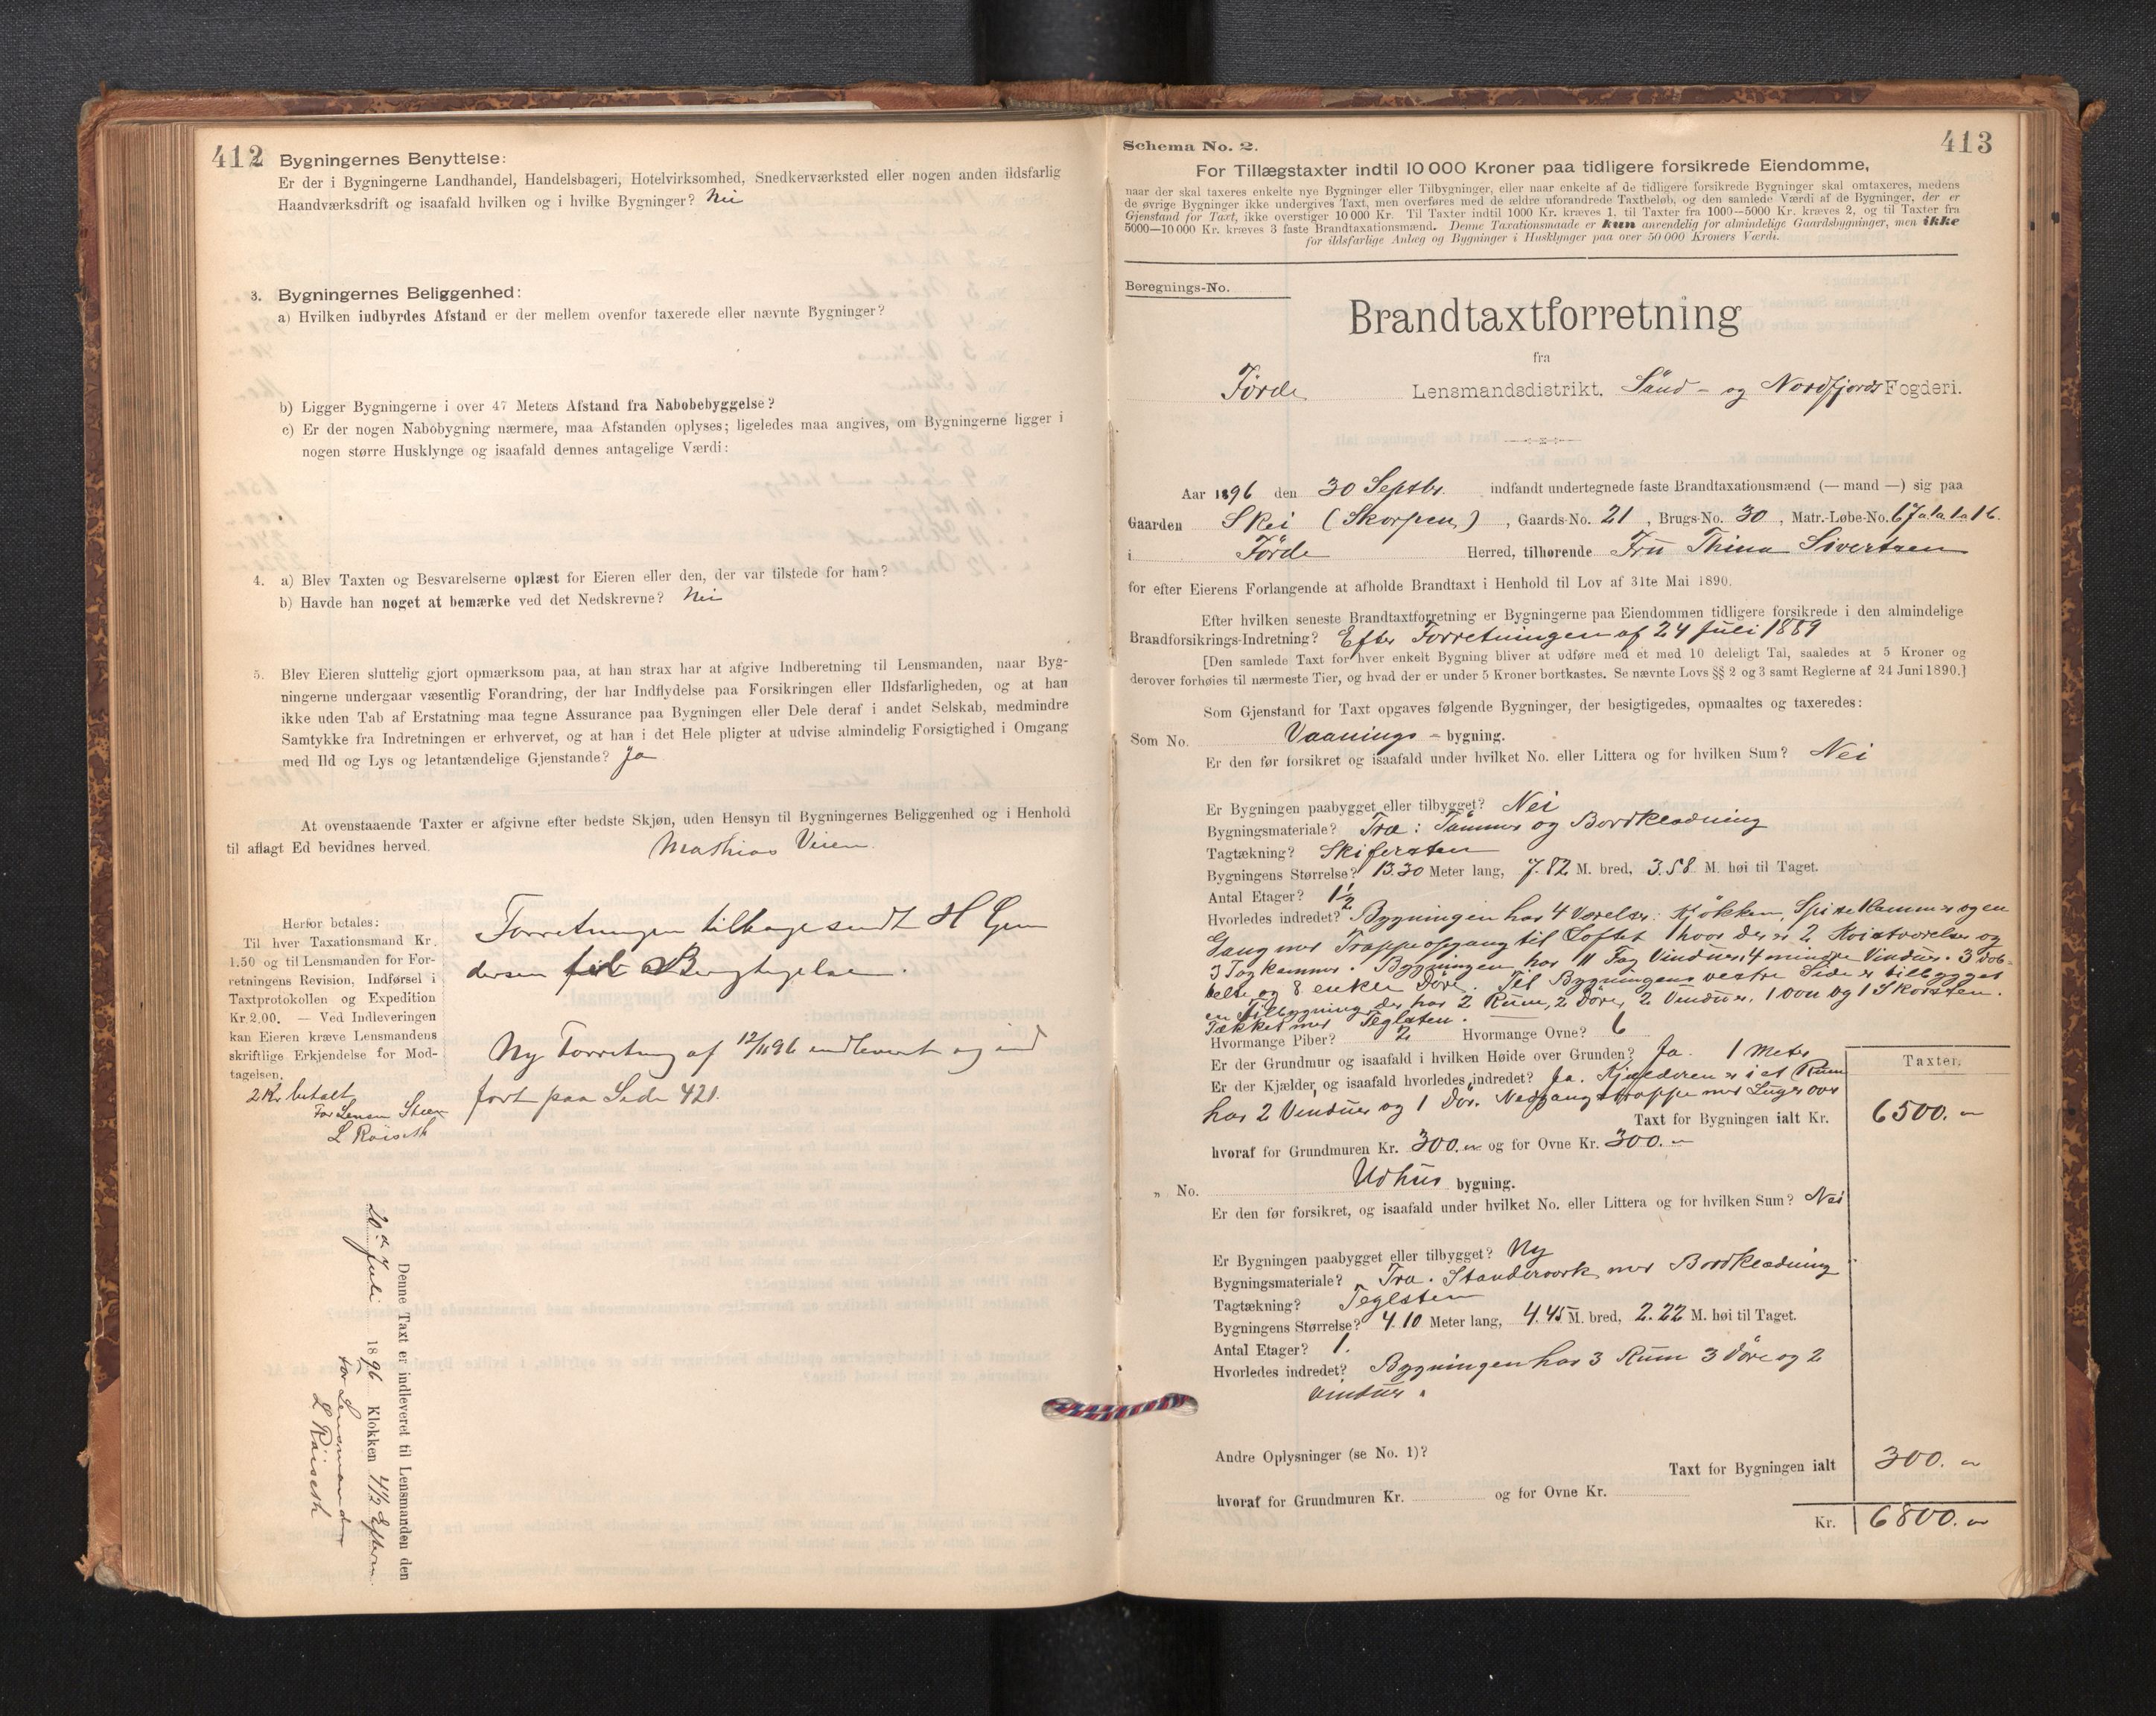 412
Bygningernes Benyttelse:
Er der i Bygningerne Landhandel, Handelsbageri, Hotelvirksomhed, Snedkerværksted eller nogen anden ildsfarlig
Haandværksdrift og isaafald hvilken og i hvilke Bygninger? Nei
3. Bygningernes Beliggenhed:
a) Hvilken indbyrdes Afstand er der mellem ovenfor taxerede eller nævnte Bygninger?
b) Ligger Bygningerne i over 47 Meters Afstand fra Nabobebyggelse?
c) Er der nogen Nabobygning nærmere, maa Afstanden oplyses; ligeledes maa angives, om Bygningerne ligger i
nogen større Husklynge og isaafald dennes antagelige Værdi:
4. a) Blev Taxten og Besvarelserne oplæst for Eieren eller den, der var tilstede for ham?
b) Havde han noget at bemærke ved det Nedskrevne? Nei
5. Blev Eieren sluttelig gjort opmærksom paa, at han strax har at afgive Indberetning til Lensmanden, naar Byg-
ningerne undergaar væsentlig Forandring, der har Indflydelse paa Forsikringen eller Ildsfarligheden, og at han
ikke uden Tab af Erstatning maa tegne Assurance paa Bygningen eller Dele deraf i andet Selskab, medmindre
Samtykke fra Indretningen er erhvervet, og at han i det Hele pligter at udvise almindelig Forsigtighed i Omgang
med Ild og Lys og letantændelige Gjenstande? Ja
At ovenstaaende Taxter er afgivne efter bedste Skjøn, uden Hensyn til Bygningernes Beliggenhed og i Henhold
til aflagt Ed bevidnes herved.
Mathias Veien
Herfor betales:
Til hver Taxationsmand Kr.
1.50 og til Lensmanden for For-
retningens Revision, Indførsel i
Taxtprotokollen og Expedition
Kr. 2,00. — Ved Indleveringen
kan Eieren kræve Lensmandens
skriftlige Erkjendelse for Mod-
tagelsen.
2 Kr betalt
For Lensm Steen
L Røiseth
Forretningen tilbagesendt H Gun
dersen til Berigtigelse.
Ny Forretning af 12/11 96 indleveret og ind
ført paa Side 421.
Denne Taxt er indleveret til Lensmanden den
20de Juli 1896 Klokken 4 1/2 Efterm.
For Lensmanden
L Røiseth
413
Schema No. 2.
For Tillægstaxter indtil 10 000 Kroner paa tidligere forsikrede Eiendomme,
naar der skal taxeres enkelte nye Bygninger eller Tilbygninger, eller naar enkelte af de tidligere forsikrede Bygninger skal omtaxeres, medens
de øvrige Bygninger ikke undergives Taxt, men overføres med de ældre uforandrede Taxtbeløb, og den samlede Værdi af de Bygninger, der er
Gjenstand for Taxt, ikke overstiger 10 000 Kr. Til Taxter indtil 1000 Kr. kræves 1, til Taxter fra 1000—5000 Kr. kræves 2, og til Taxter fra
5000—10 000 Kr. kræves 3 faste Brandtaxationsmænd. Denne Taxationsmaade er kun anvendelig for almindelige Gaardsbygninger, men ikke
for ildsfarlige Anlæg og Bygninger i Husklynger paa over 50 000 Kroners Værdi.
Beregnings-No.
Brandtaxtforretning
fra
Førde Lensmandsdistrikt, Sønd- og Nordfjords Fogderi.
Aar 1896 den 30 Septbr. indfandt undertegnede faste Brandtaxationsmænd (— mand —) sig paa
Gaarden Skei (Skorpen), Gaards-No. 21, Brugs-No. 30, Matr.-Løbe-No. 67a1a1a16.
i Førde Herred, tilhørende Fru Thina Sivertsen
for efter Eierens Forlangende at afholde Brandtaxt i Henhold til Lov af 31te Mai 1890.
Efter hvilken seneste Brandtaxtforretning er Bygningerne paa Eiendommen tidligere forsikrede i den almindelige
Brandforsikrings-Indretning? Efter Forretningen af 24 Juli 1889
[Den samlede Taxt for hver enkelt Bygning bliver at udføre med et med 10 deleligt Tal, saaledes at 5 Kroner og
derover forhøies til nærmeste Tier, og hvad der er under 5 Kroner bortkastes. Se nævnte Lovs §§ 2 og 3 samt Reglerne af 24 Juni 1890.]
Som Gjenstand for Taxt opgaves følgende Bygninger, der besigtigedes, opmaaltes og taxeredes:
Som No. Vaanings-bygning.
Er den før forsikret og isaafald under hvilket No. eller Littera og for hvilken Sum? Nei
Er Bygningen paabygget eller tilbygget? Nei
Bygningsmateriale? Træ: Tømmer og Bordklædning
Tagtækning? Skifersten
Bygningens Størrelse? 13.30 Meter lang, 7.82 M. bred, 3.58 M. høi til Taget.
Antal Etager? 1 1/2
Hvorledes indredet? Bygningen har 4 Værelser, Kjøkken, Spisekammer og en
Gang med Trappeopgang til Loftet hvor der er 2 Kvistværelser og
3 Tagkammer. Bygningen har 11 Fag Vinduer, 4 mindre Vinduer. 3 dob-
belte og 8 enkle Døre. Til Bygningens vestre Side er tilbygget
en Tilbygning der har 2 Rum, 2 Døre, 2 Vinduer, 1 Ovn og 1 Skorsten.
Tækket med Teglsten.
Hvormange Piber? 2 Hvormange Ovne? 6
Er der Grundmur og isaafald i hvilken Høide over Grunden? Ja. 1 Meter
Er der Kjælder og isaafald hvorledes indredet? Ja. Kjælderen er i et Rum
har 2 Vinduer og 1 Dør. Nedgangstrappe med Luge over
Taxter.
Taxt for Bygningen ialt Kr. 6500.
hvoraf for Grundmuren Kr. 300. og for Ovne Kr. 300.
" No. Udhus bygning.
Er den før forsikret, og isaafald under hvilket No. eller Littera og for hvilken Sum? Nei
Er Bygningen paabygget eller tilbygget? Ny
Bygningsmateriale? Træ. Standerværk med Bordklædning
Tagtækning? Teglsten
Bygningens Størrelse? 4.10 Meter lang, 4.45 M. bred, 2.22 M. høi til Taget.
Antal Etager? 1.
Hvorledes indredet? Bygningen har 3 Rum 3 Døre og 2
Vinduer.
Andre Oplysninger (se No. 1)?
Taxt for Bygningen ialt 300.
hvoraf for Grundmuren Kr. og for Ovne Kr.
Kr. 6800.